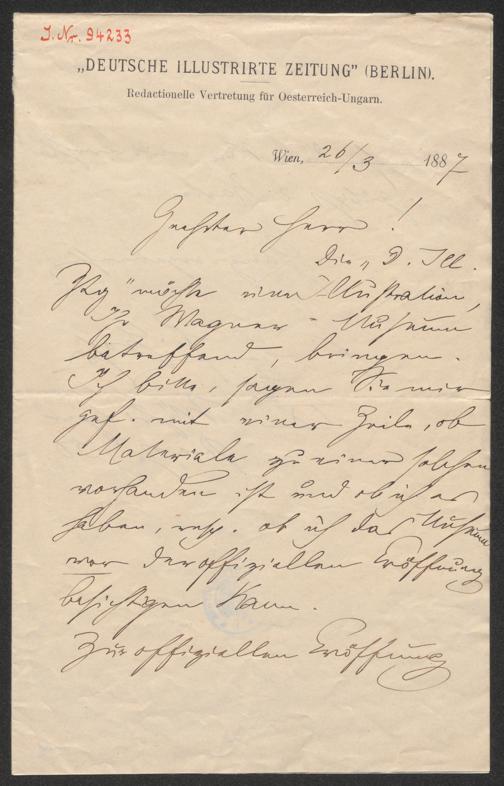 J. Nr. 94233
„DEUTSCHE ILLUSTRIRTE ZEITUNG” (BERLIN).
Redactionelle Vertretung für Oesterreich-Ungarn.
Wien, 26/3 1887
Geehrter Herr!
Die „D. Ill.
Ztg” möchte eine Illustration,
Ihr Wagner-Museum
betreffend, bringen.
Ich bitte, sagen Sie mir
gef. mit einer Zeile, ob
Materiale zu einer solchen
vorhanden ist und ob ich es
haben, resp. ob ich das Museum
vor der offiziellen Eröffnung
besichtigen kann.
Zur offiziellen Eröffnung